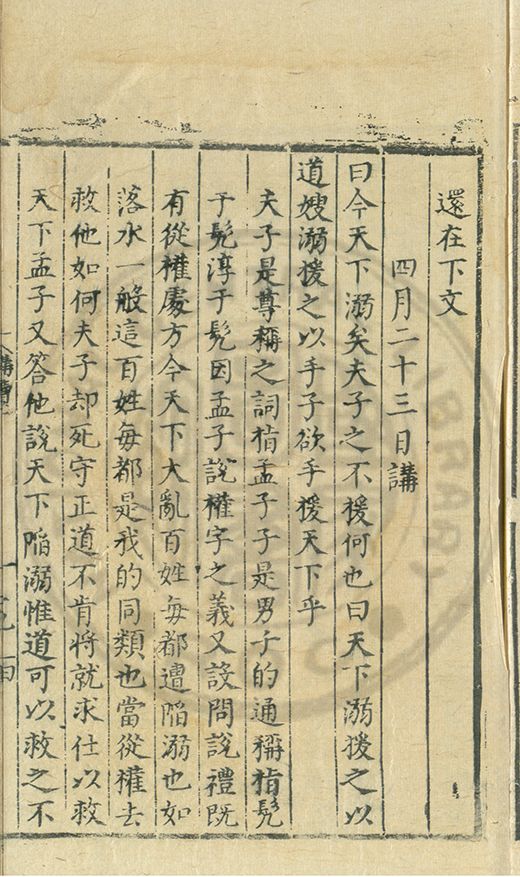 還在下文
四月二十三日講
曰今天下溺矣夫子之不援何也曰天下溺援之以
道嫂溺援之以手子欲手援天下乎
夫子是尊稱之詞指孟子子是男子的通稱指髡
于髡淳于髡因孟子說權字之義又設問說禮既
有從權處方今天下大亂百姓每都遭陷溺也如
落水一般這百姓每都是我的同類也當從權去
救他如何夫子却死守正道不肯將就求仕以救
天下孟子又答他說天下陷溺惟道可以救之不